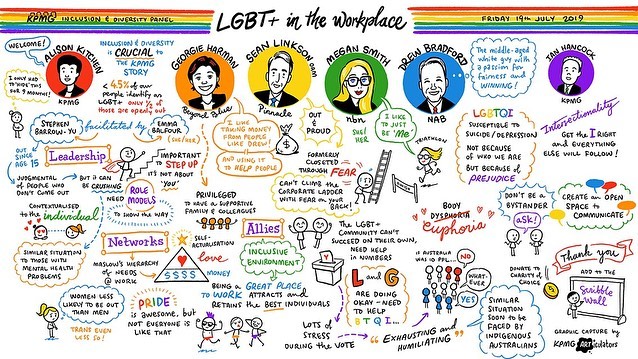 KPMG INCLUSION & DIVERSITY PANEL
LGBT+ in the Workplace
FRIDAY 19th JULY 2019
WELCOME!
ALISON KITCHEN
KPMG
I ONLY HAD TO HIDE THIS FOR 9 MONTHS!
INCLUSION & DIVERSITY
is CRUCIAL
to the KPMG
STORY
< 4.5% of our
people identify as
LGBT+ only 1/2 of
those are openly out
GEORGIE HARMAN
Beyond Blue
SEAN LINKSON
Pinnacle
MEGAN SMITH
nbn
DREW BRADFORD
NAB
The middle-aged
white guy with
a passion for
fairness and
WINNING!
IAN HANCOCK
KPMG
STEPHEN
BARROW-YU
facilitated by
EMMA
BALFOUR
(SHE/HER)
I LIKE
TAKING MONEY
FROM PEOPLE
LIKE DREW!
AND USING IT
TO HELP PEOPLE
OUT
&
PROUD
SHE/
HER
I LIKE
TO JUST
BE 'Me'
TRIATHLON
LGBTQI
SUSCEPTIBLE TO
SUICIDE / DEPRESSION
NOT BECAUSE
OF WHO WE ARE
BUT BECAUSE OF
PREJUDICE
Intersectionality
GET THE I RIGHT
AND EVERYTHING
ELSE WILL FOLLOW!
OUT
SINCE
AGE 15
Leadership
JUDGMENTAL
OF PEOPLE WHO
DON'T COME OUT
BUT IT CAN
BE CRUSHING
IMPORTANT
STEP UP
IT'S NOT
ABOUT 'YOU'
NEED
ROLE
MODELS
TO SHOW THE WAY
PRIVILEGED
TO HAVE A SUPPORTIVE
FAMILY & COLLEAGUES
FORMERLY
CLOSETED
THROUGH FEAR
CAN'T CLIMB THE
CORPORATE LADDER
WITH FEAR ON YOUR
BACK!
BODY
DYSPHORIA
euphoria
DON'T BE A
BYSTANDER
ask!
CREATE AN OPEN
SPACE TO
COMMUNICATE!
CONTEXTUALISED
to the individual
SIMILAR SITUATION
TO THOSE WITH
MENTAL HEALTH
PROBLEMS
Networks
SELF-
ACTUALISATION
love
MASLOW'S HIERARCHY
OF NEEDS
@ WORK
$$$$
MONEY
Allies
INCLUSIVE
ENVIRONMENT
BEING A GREAT PLACE
TO WORK ATTRACTS AND
RETAINS THE BEST INDIVIDUALS
THE LGBT+
COMMUNITY CAN'T
SUCCEED ON THEIR OWN,
NEED HELP
IN NUMBERS
IF AUSTRALIA
WAS 10 PPL...
NO
WHAT-
EVER
YES
DONATE TO
CHARITY OF
CHOICE
Thank you
ADD TO THE
Scribble
Wall
WOMEN LESS
LIKELY TO BE OUT
THAN MEN
TRANS EVEN
LESS SO!
PRIDE
is AWESOME, but
NOT EVERYONE
IS LIKE THAT
L and G
ARE DOING
OKAY - NEED
TO HELP
BTQI...
LOTS OF
STRESS
DURING THE VOTE
"EXHAUSTING AND
HUMILIATING"
SIMILAR
SITUATION
SOON TO BE
FACED BY
INDIGENOUS
AUSTRALIANS
GRAPHIC CAPTURE by
KPMG ARTiculators